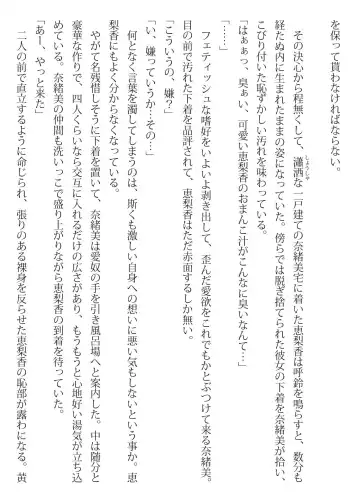 を保って貰わなければならない。
その決心から程無くして、瀟洒な二戸建ての奈緒美宅に着いた恵梨香は呼鈴を鳴らすと、数分も
経たぬ内に生まれたままの姿になっていた。傍らでは脱ぎ捨てられた彼女の下着を奈緒美が拾い、
こびり付いた恥ずかしい汚れを味わっている。
「はぁぁっ、臭ぁい、可愛い恵梨香のおまんこ汁がこんなに臭いなんて…」
「……」
フェティッシュな嗜好をいよいよ剥き出して、歪んだ愛欲をこれでもかとぶつけて来る奈緒美。
目の前で汚れた下着を品評されて、恵梨香はただ赤面するしか無い。
「こういうの、嫌？」
「い、嫌っていうか…その…」
何となく言葉を濁してしまうのは、斯くも激しい自身への想いに悪い気もしないという事か。恵
梨香にもよく分からなくなっている。
やがて名残惜しそうに下着を置いて、奈緒美は愛奴の手を引き風呂場へと案内した。中は随分と
豪華な作りで、四人くらいなら交互に入れるだけの広さがあり、もうもうと心地好い湯気が立ち込
めている。奈緒美の仲間も洗いっこで盛り上がりながら恵梨香の到着を待っていた。
「あー、やっと来た」
二人の前で直立するように命じられ、張りのある裸身を反らせた恵梨香の恥部が露わになる。黄